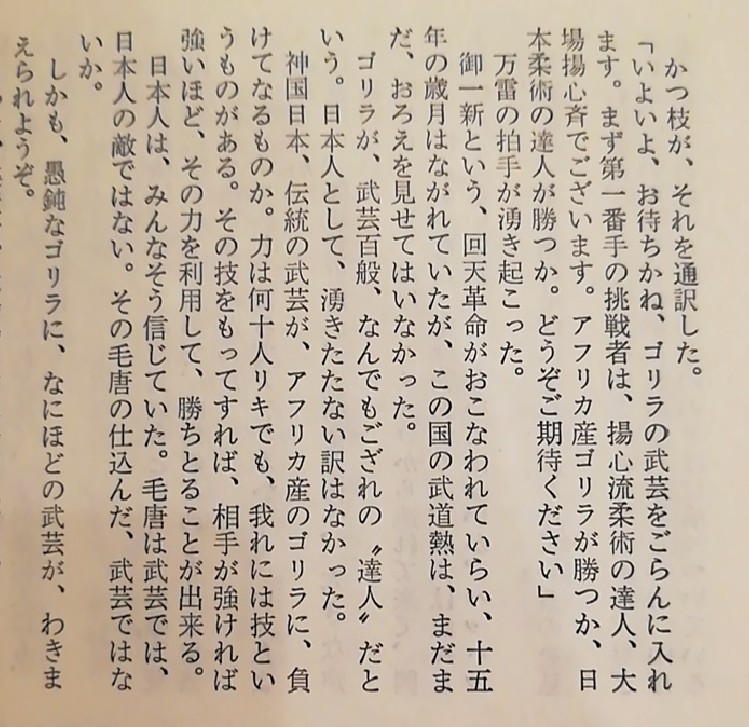 かつ枝が、それを通訳した。
「いよいよ、お待ちかね、ゴリラの武芸をごらんに入れ
ます。まず第一番手の挑戦者は、揚心流柔術の達人、大
場揚心斉でございます。アフリカ産ゴリラが勝つか、日
本柔術の達人が勝つか。どうぞご期待ください」
万雷の拍手が湧き起こった。
御一新という、回天革命がおこなわれていらい、十五
年の歳月はながれていたが、この国の武道熱は、まだま
だ、おろえを見せてはいなかった。
ゴリラが、武芸百般、なんでもござれの〝達人〟だと
いう。日本人として、湧きたたない訳はなかった。
神国日本、伝統の武芸が、アフリカ産のゴリラに、負
けてなるものか。力は何十人リキでも、我れには技とい
うものがある。その技をもってすれば、相手が強ければ
強いほど、その力を利用して、勝ちとることが出来る。
日本人は、みんなそう信じていた。毛唐は武芸では、
日本人の敵ではない。その毛唐の仕込んだ、武芸ではな
いか。
しかも、愚鈍なゴリラに、なにほどの武芸が、わきま
えられようぞ。